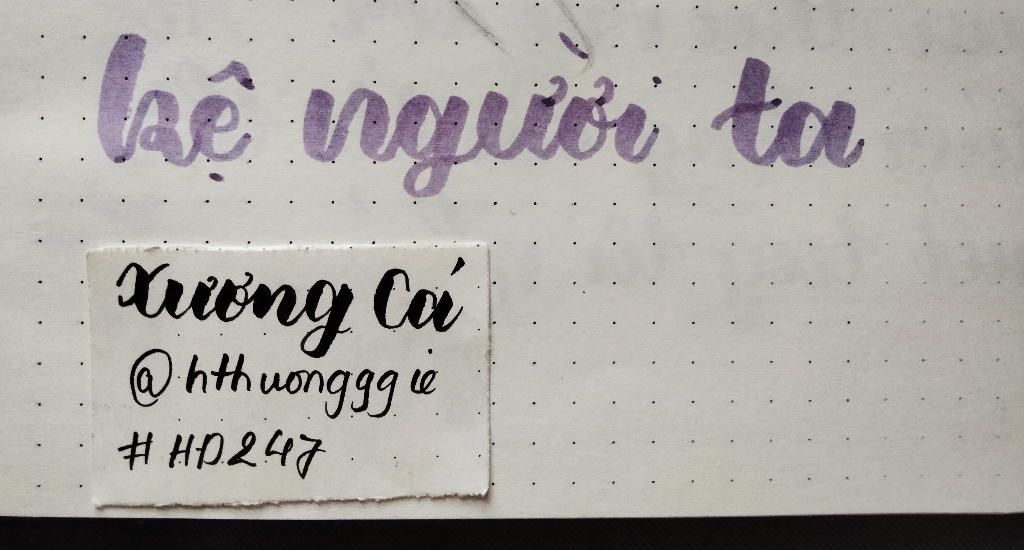 kệ người ta
Xương Cá
@hthuongggie
#HD247